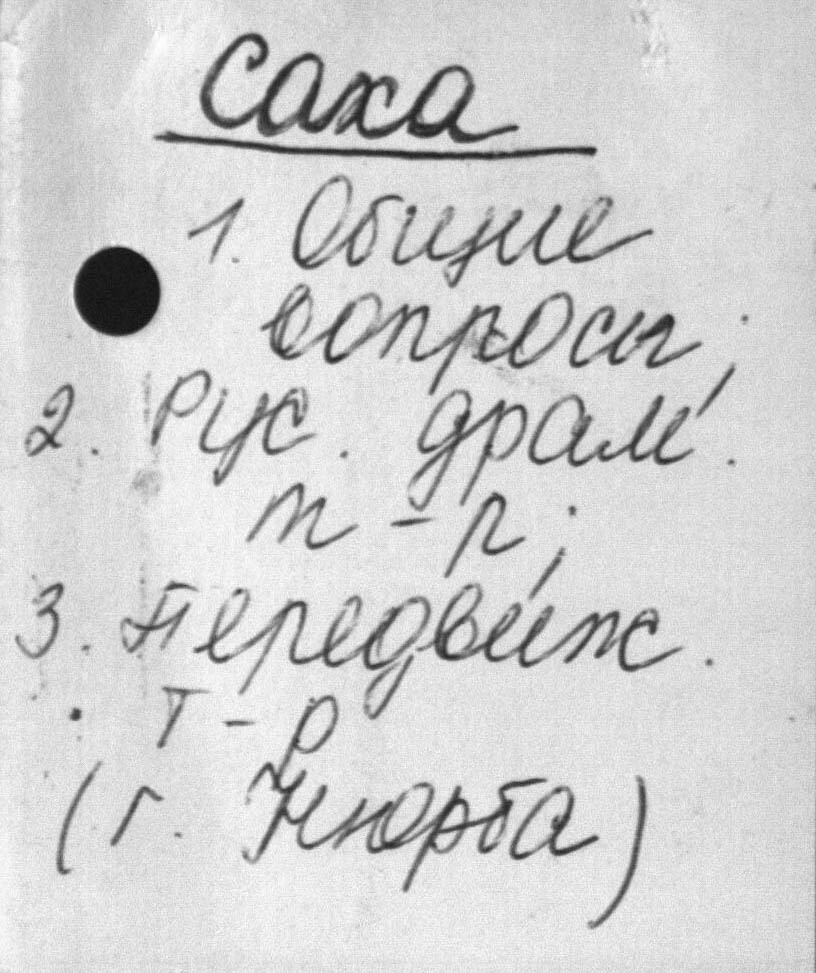 Саха
1. Общие
вопросы;
2. Рус. драм.
т-р;
3. Передвиж.
Т-р
(г. Нюрба)